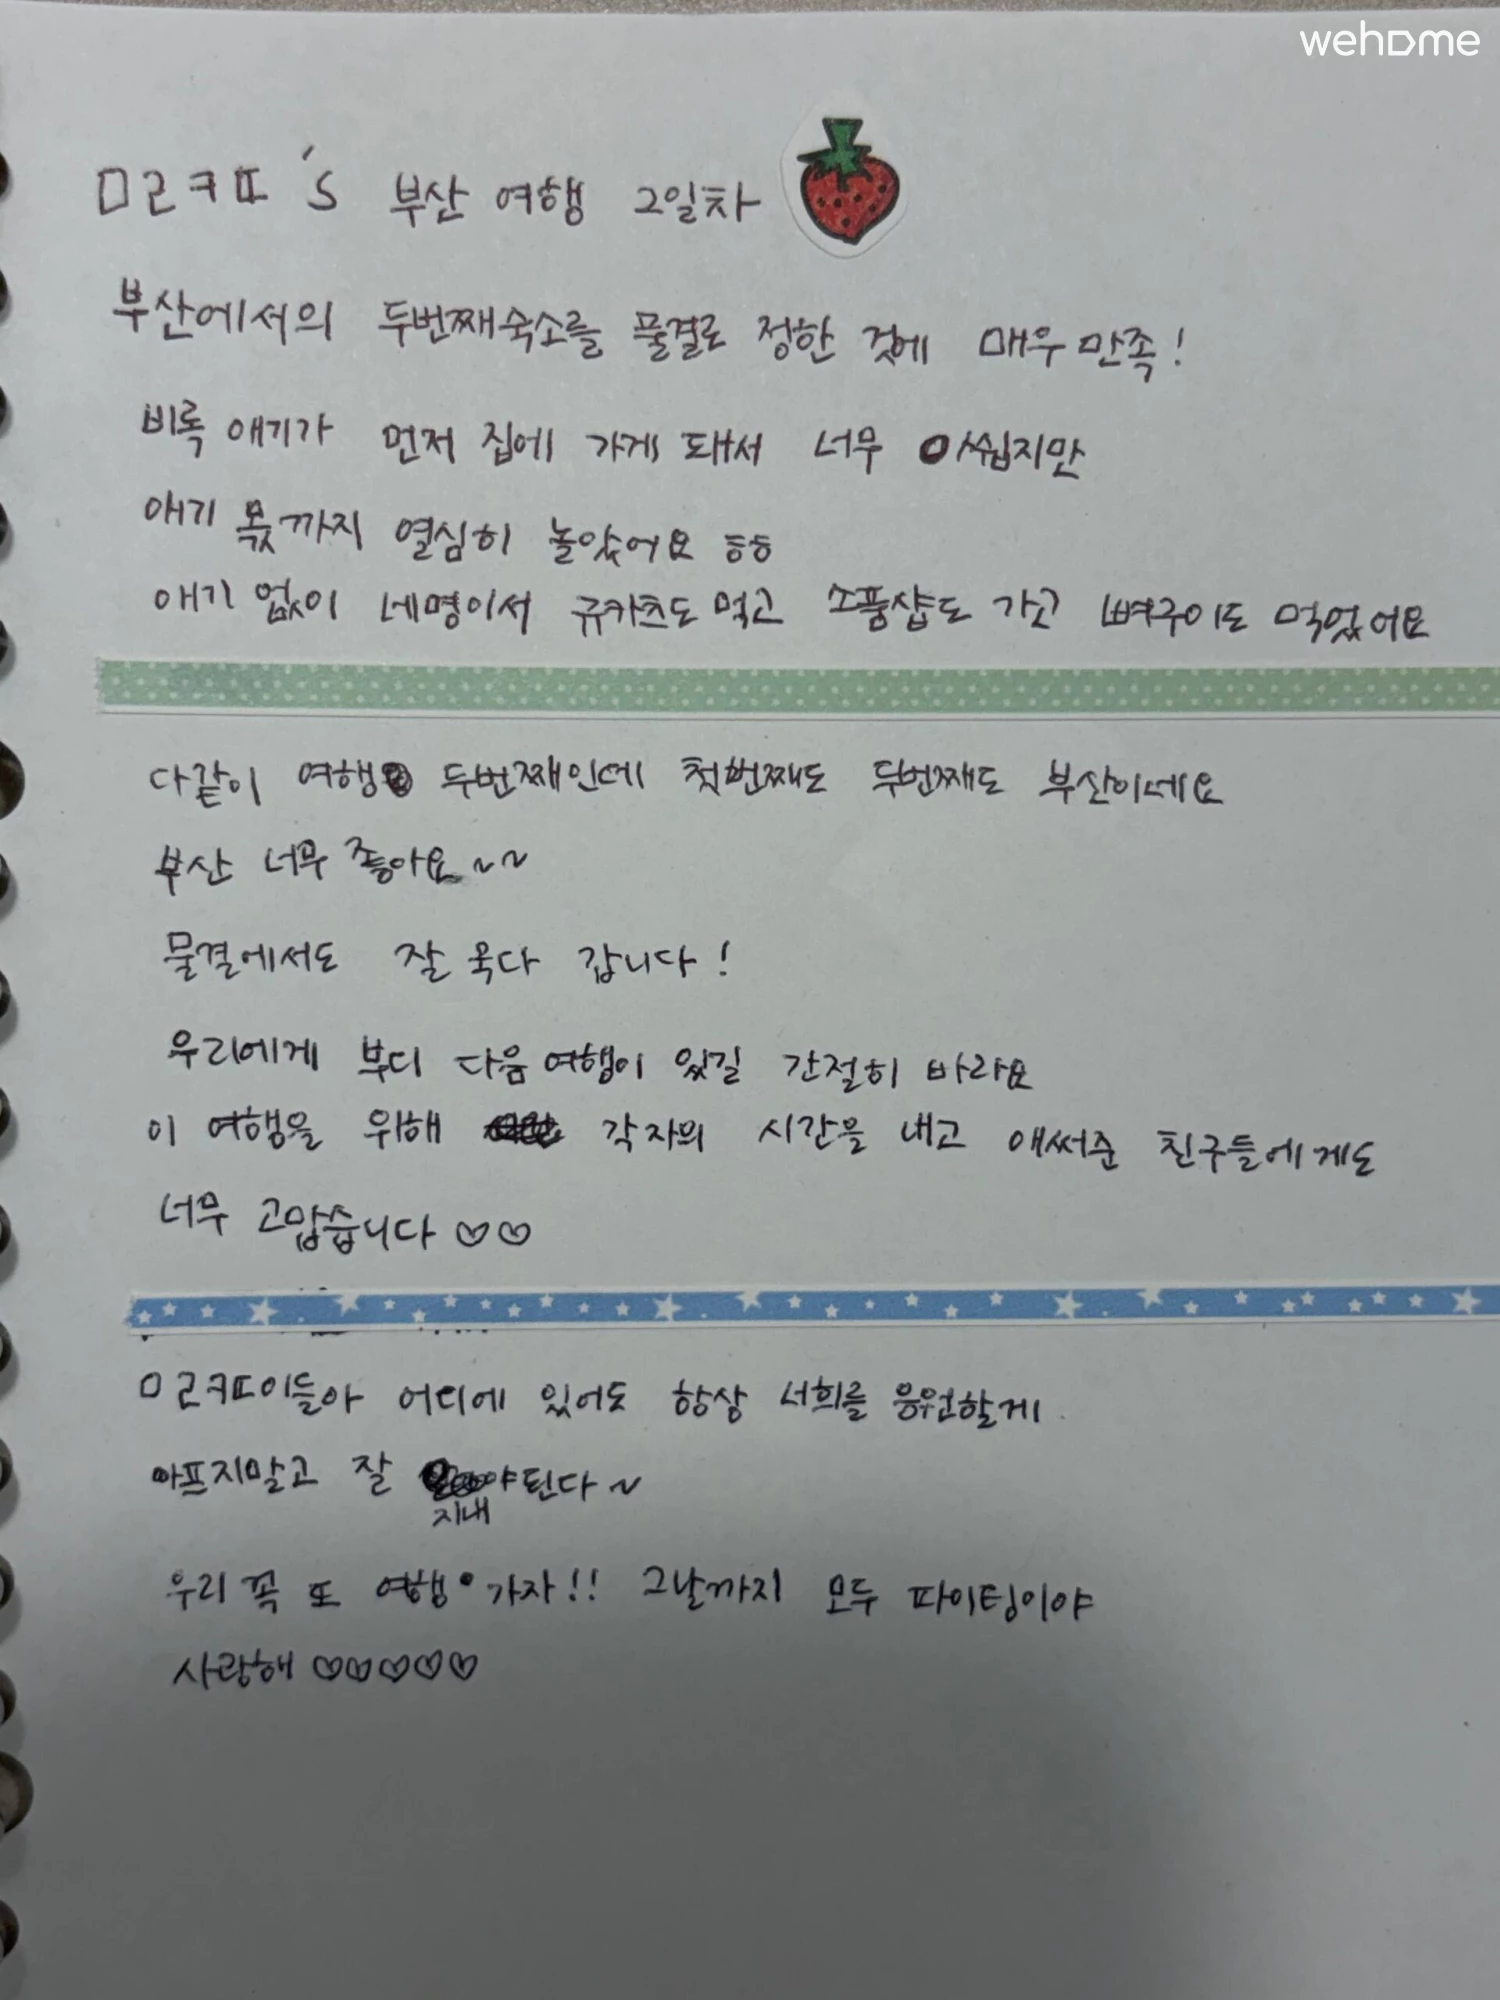 wehome
ㅁㄹㅋㄸ's 부산 여행 2일차
부산에서의 두번째숙소를 물결로 정한 것에 매우 만족!
비록 애기가 먼저 집에 가게 돼서 너무 아쉽지만
애기 몫까지 열심히 놀았어요 ㅎㅎ
애기 없이 네명이서 규카츠도 먹고 소품샵도 가고 뼈구이도 먹었어요
다같이 여행 두번째인데 첫번째도 두번째도 부산이네요
부산 너무 좋아요~~
물결에서도 잘 묵다 갑니다!
우리에게 부디 다음 여행이 있길 간절히 바라요
이 여행을 위해 각자의 시간을 내고 애써준 친구들에게도
너무 고맙습니다 ♡♡
ㅁㄹㅋㄸ이들아 어디에 있어도 항상 너희를 응원할게
아프지말고 잘 지내야된다~
우리 꼭 또 여행 가자!! 그날까지 모두 파이팅이야
사랑해 ♡♡♡♡♡